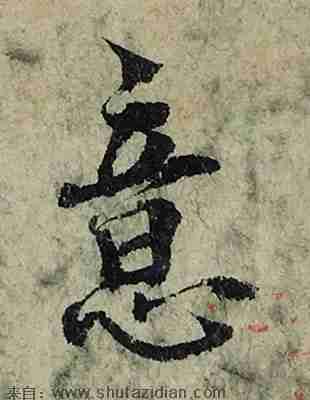 意
来自：www.shufazidian.com